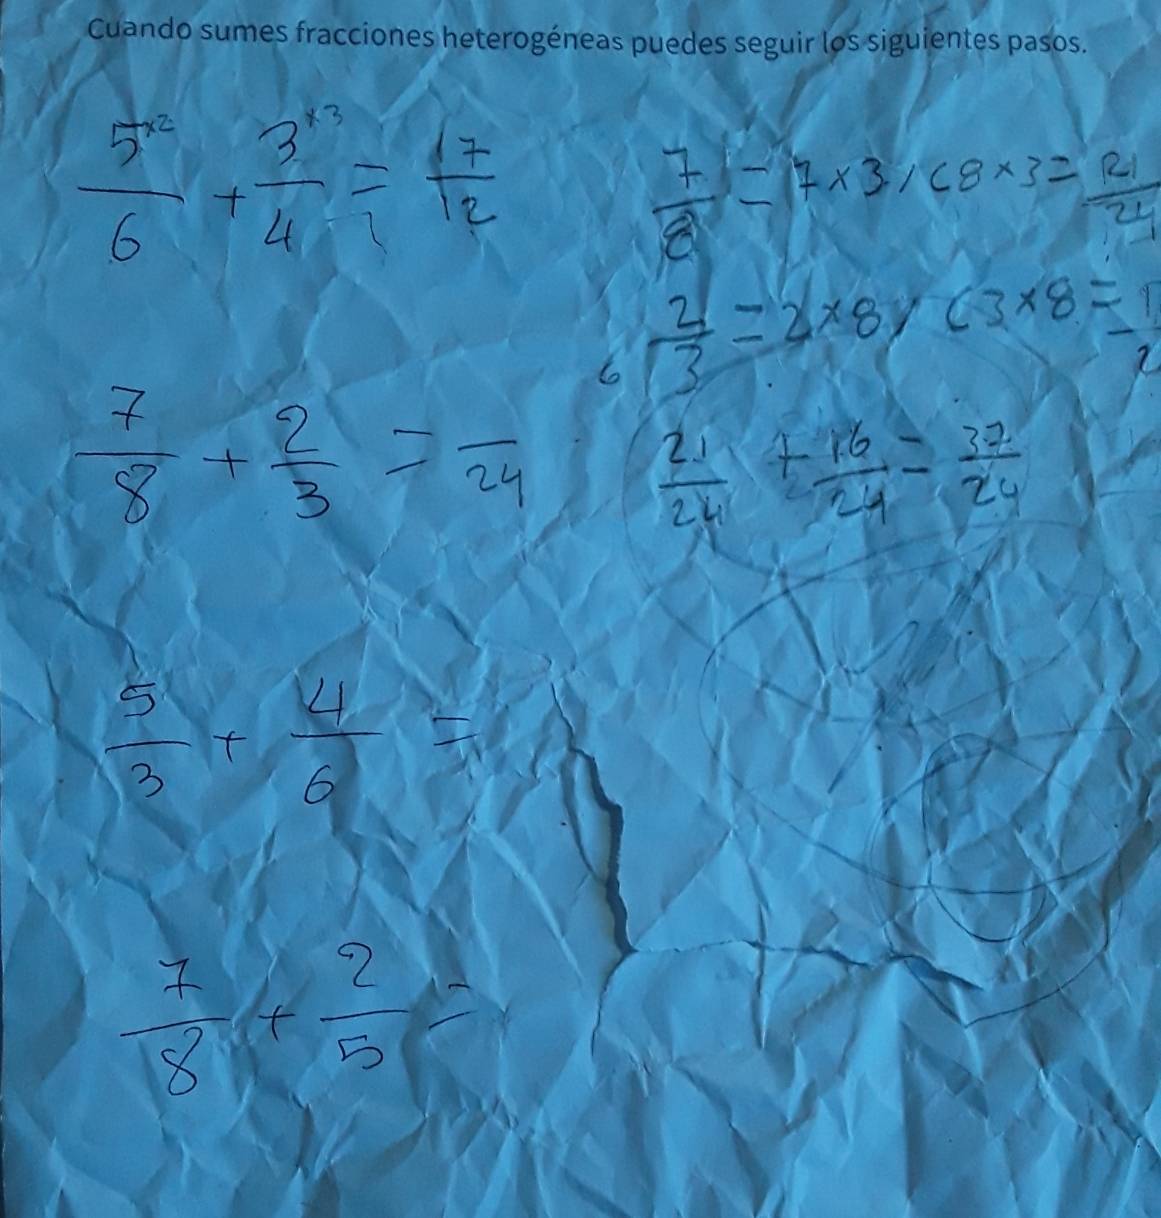 Cuando sumes fracciones heterogéneas puedes seguir los siguientes pasos.
5×2/6 + 3×3/4 = 17/12
7/8 = 7×3/(8×3 = 21/24
2/3 = 2×8/(3×8 =
6
7/8 + 2/3 = /24
21/24 + 16/24 = 37/24
5/3 + 4/6 =
7/8 + 2/5 =